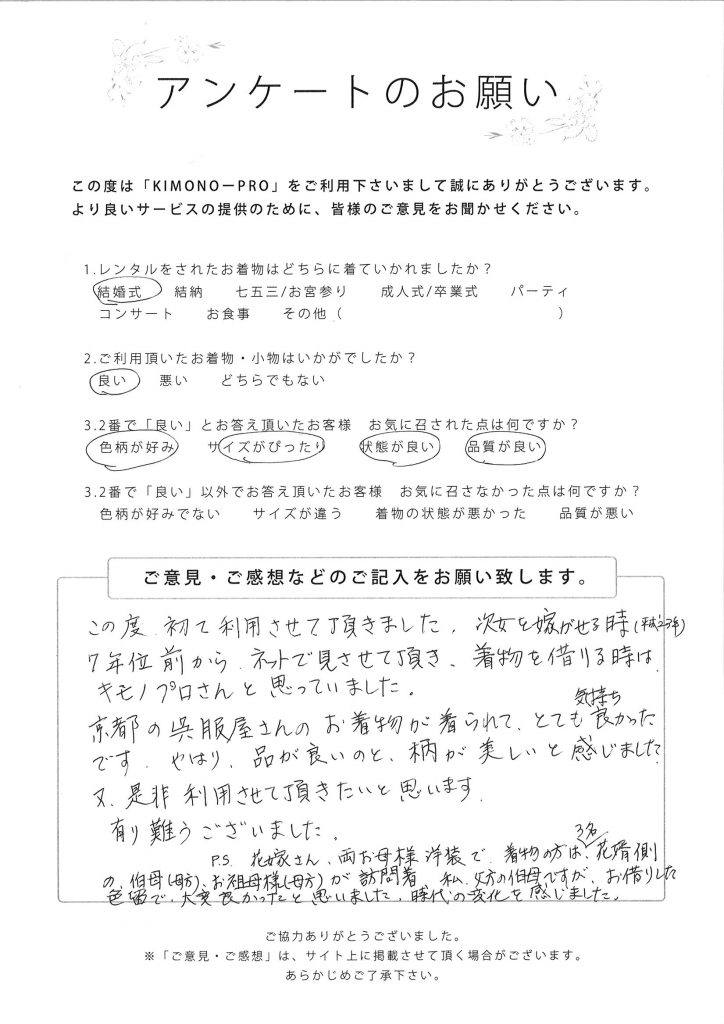 アンケートのお願い
この度は「KIMONO－PRO」をご利用下さいまして誠にありがとうございます。
より良いサービスの提供のために、皆様のご意見をお聞かせください。
1.レンタルをされたお着物はどちらに着ていかれましたか？
結婚式　結納　七五三/お宮参り　成人式/卒業式　パーティ
コンサート　お食事　その他（　　　　　　　　　　）
2.ご利用頂いたお着物・小物はいかがでしたか？
良い　悪い　どちらでもない
3.2番で「良い」とお答え頂いたお客様　お気に召された点は何ですか？
色柄が好み　サイズがぴったり　状態が良い　品質が良い
3.2番で「良い」以外でお答え頂いたお客様　お気に召さなかった点は何ですか？
色柄が好みでない　サイズが違う　着物の状態が悪かった　品質が悪い
ご意見・ご感想などのご記入をお願い致します。
この度、初て利用させて頂きました。次女を嫁がせる時(平成23年)
7年位前から、ネットで見させて頂き、着物を借りる時は
キモノプロさんと思っていました。
京都の呉服屋さんのお着物が着られて、とても気持ち良かった
です。やはり、品が良いのと、柄が美しいと感じました。
又、是非利用させて頂きたいと思います。
有り難うございました。
P.S. 花嫁さん、両お母様洋装で、着物の方は、3名花婿側
の、伯母(母方)、お祖母様(母方)が訪問着、私、父方の伯母ですが、お借りした
色留で、大変良かったと思いました。時代の変化を感じました。
ご協力ありがとうございました。
※「ご意見・ご感想」は、サイト上に掲載させて頂く場合がございます。
あらかじめご了承下さい。